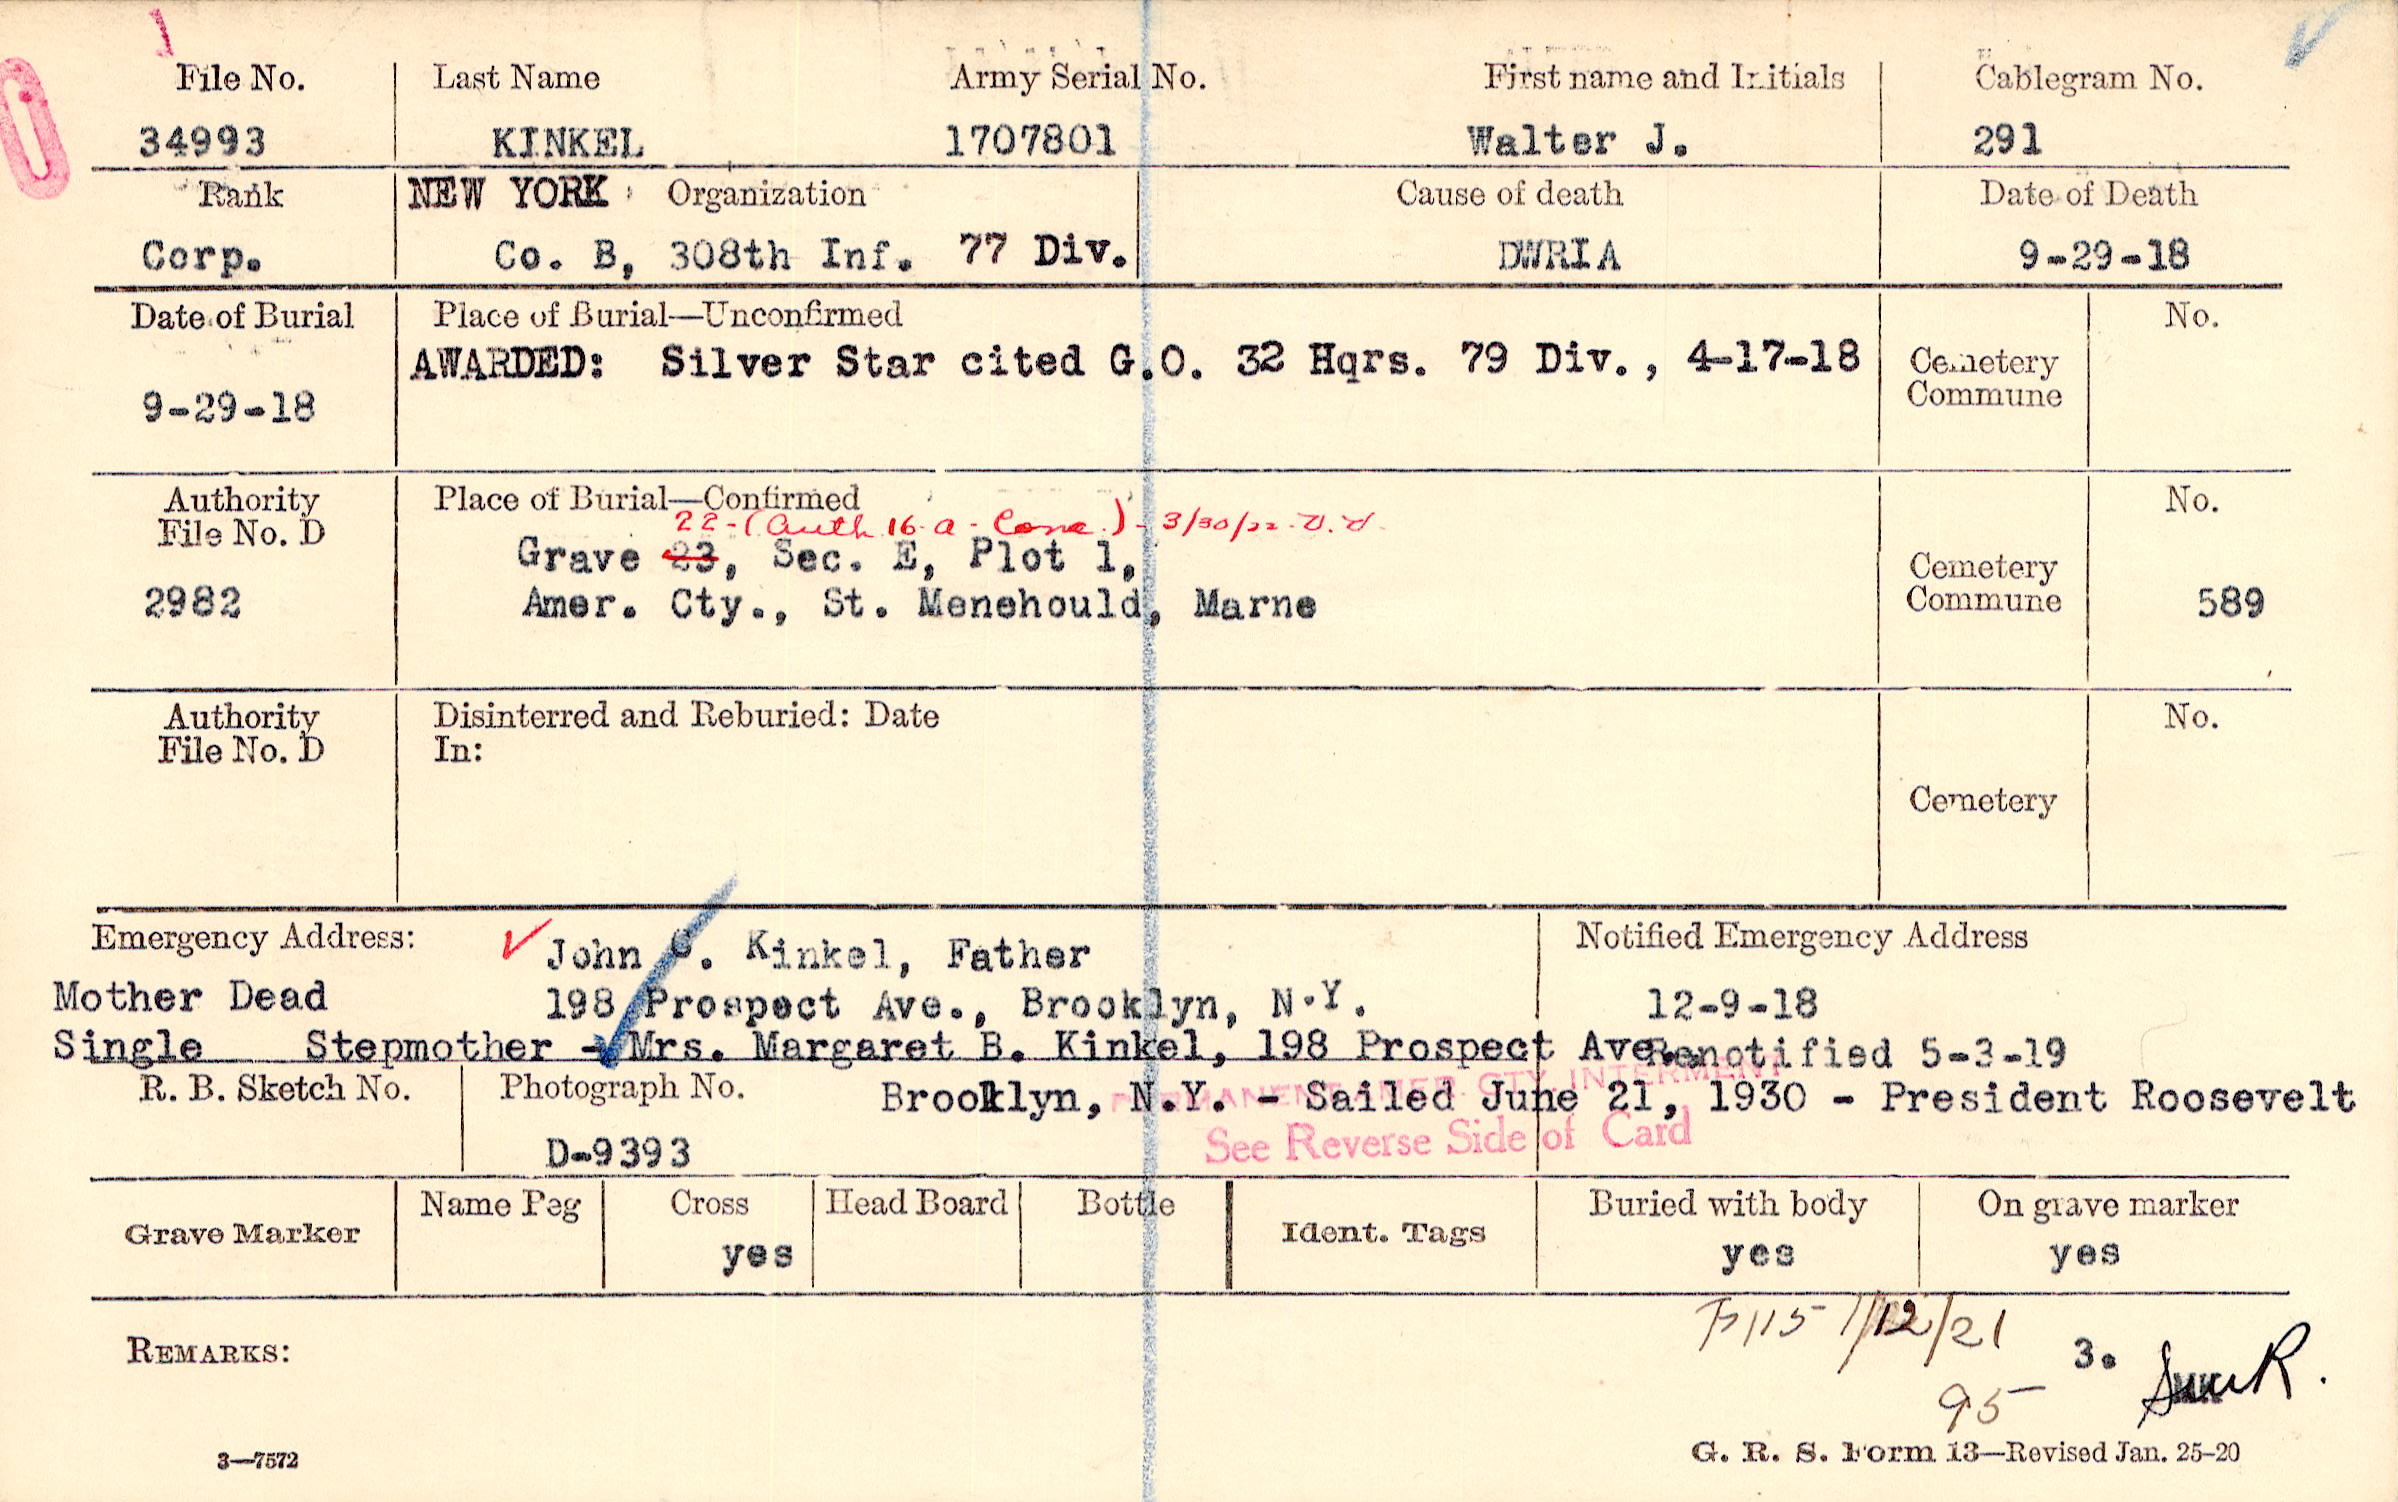 File No. Last Name Army Serial No. First name and Initials Cablegram No.
34993 KINKEL 1707801 Walter J. 291
Rank NEW YORK Organization Cause of death Date of Death
Corp. Co. B, 308th Inf. 77 Div. DWRIA 9-29-18
Date of Burial Place of Burial—Unconfirmed No.
AWARDED: Silver Star cited G.O. 32 Hqrs. 79 Div., 4-17-18 Cemetery
Commune
9-29-18
Authority Place of Burial—Confirmed No.
File No. D
22-(Auth 16-a- Conc.)- 3/30/22-
Grave 23, Sec. E, Plot 1, Cemetery
2982 Amer. Cty., St. Menehould, Marne Commune 589
Authority Disinterred and Reburied: Date No.
File No. D In:
Cemetery
Emergency Address: John C. Kinkel, Father Notified Emergency Address
Mother Dead 198 Prospect Ave., Brooklyn, N.Y. 12-9-18
Single Stepmother - Mrs. Margaret B. Kinkel, 198 Prospect Ave., Renotified 5-3-19
PERMANENT AMER. CTY INTERMENT
R. B. Sketch No. Photograph No. Brooklyn, N.Y. - Sailed June 21, 1930 - President Roosevelt
See Reverse Side of Card
D-9393
Grave Marker Name Peg Cross Head Board Bottle Ident. Tags Buried with body On grave marker
yes yes yes
REMARKS:
1/12/21
3.
95
3—7572 G. R. S. Form 13—Revised Jan. 25-20